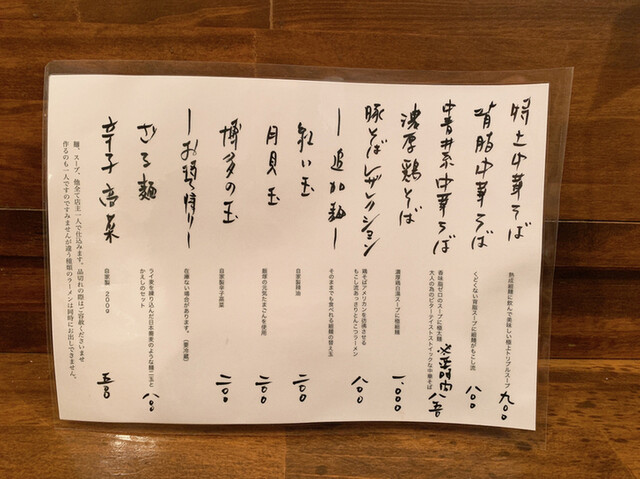 焔土中華そば
熱ɔ細麺に飲んで美味しい極上トリプルスープ
九〇〇
背脂中華そば
くどくない背脂スープに細麺がもこし流
八〇〇
中青井系中華そば
香味脂ゼロのスープに極太麺
大人の為のビターテイストストイックな中華そば
八五〇
濃厚鶏そば
濃厚鶏白湯スープに極細麺
一、〇〇〇
豚そばレザレクション
鶏そばアメリカンを彷彿させる
もこし流あっさりとんこつラーメン
八〇〇
ー追加麺ー
そのままでも食べれる細麺の替え玉
紅い玉
自家製辣油
二〇〇
月見玉
飯塚の元気たまごんを使用
二〇〇
博多の玉
自家製辛子高菜
二〇〇
ーお持ち帰りー
在庫ない場合があります。(要冷蔵)
ざる麺
ライ麦を練り込んだ日本蕎麦のような麺二玉と
かえしのセット
八〇〇
辛子高菜
自家製 200g
五〇〇
麺、スープ、他全て店主一人で仕込みます。品切れの際はご容赦くださいませ
作るのも一人ですのですみませんが違う種類のラーメンは同時にお出しできません。